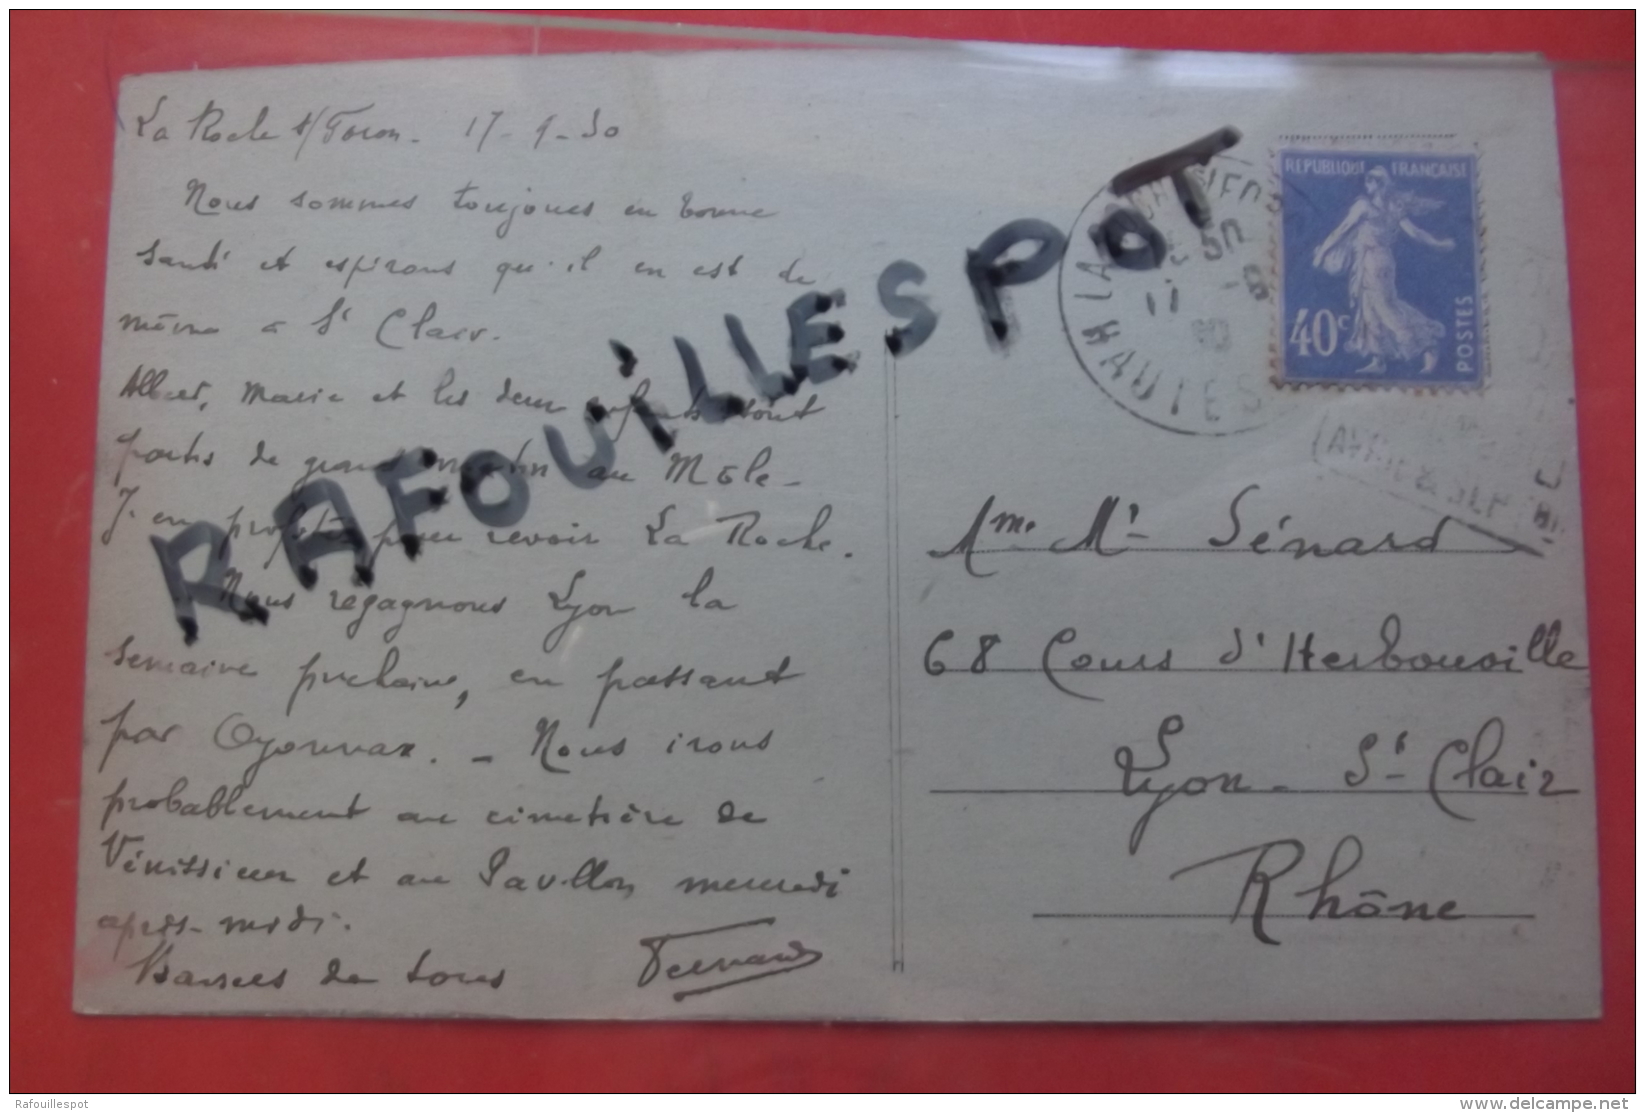 La Roche s/ Foron. 17-9-30
Nous sommes toujours en bonne
santé et espérons qu'il en est de
même à St Clair.
Albert, Marie et les deux enfants sont
partis de grand matin au Môle -
J'en profite pour revoir La Roche.
Nous regagnons Lyon la
semaine prochaine, en passant
par Oyonnax. - Nous irons
probablement au cimetière de
Vénissieux et au Pavillon mercredi
après-midi.
Baisers de tous Fernand
RAFOUILLESPOT
REPUBLIQUE FRANÇAISE
40c
POSTES
LA
HAUTE S
Mr Sénard
68 Cours d'Herbouville
Lyon - St-Clair
Rhône
Rafouillespot
www.delcampe.net